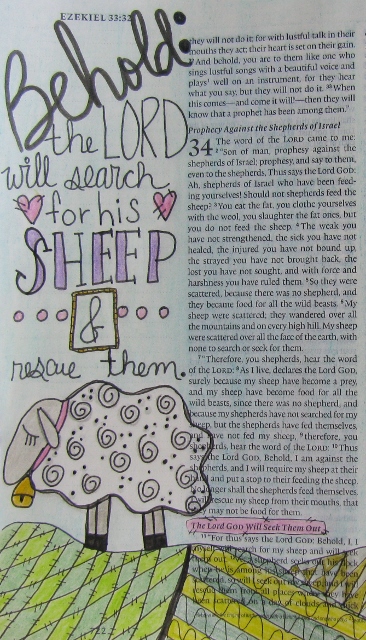 EZEKIEL 33:32
Behold:
the LORD
will search
for his
SHEEP
&
rescue them.
they will not do it; for with lustful talk in their
mouths they act; their heart is set on their gain.
And behold, you are to them like one who
sings lustful songs with a beautiful voice and
plays well on an instrument, for they hear
what you say, but they will not do it. 33When
this comes—and come it will!—then they will
know that a prophet has been among them."
Prophecy Against the Shepherds of Israel
34 The word of the LORD came to me:
2"Son of man, prophesy against the
shepherds of Israel; prophesy, and say to them,
even to the shepherds, Thus says the Lord GOD:
Ah, shepherds of Israel who have been feed-
ing yourselves! Should not shepherds feed the
sheep? 3You eat the fat, you clothe yourselves
with the wool, you slaughter the fat ones, but
you do not feed the sheep. 4The weak you
have not strengthened, the sick you have not
healed, the injured you have not bound up,
the strayed you have not brought back, the
lost you have not sought, and with force and
harshness you have ruled them. 5So they were
scattered, because there was no shepherd, and
they became food for all the wild beasts. 6My
sheep were scattered; they wandered over all
the mountains and on every high hill. My sheep
were scattered over all the face of the earth, with
none to search or seek for them.
7"Therefore, you shepherds, hear the word
of the LORD: 8As I live, declares the Lord GOD,
surely because my sheep have become a prey,
and my sheep have become food for all the
wild beasts, since there was no shepherd, and
because my shepherds have not searched for my
sheep, but the shepherds have fed themselves,
and have not fed my sheep, 9therefore, you
shepherds, hear the word of the LORD: 10Thus
says the Lord GOD, Behold, I am against the
shepherds, and I will require my sheep at their
hand and put a stop to their feeding the sheep.
No longer shall the shepherds feed themselves.
I will rescue my sheep from their mouths, that
may not be food for them.
The Lord GOD Will Seek Them Out
11"For thus says the Lord GOD: Behold, I, I
myself will search for my sheep and will seek
them out. As a shepherd seeks out his flock
when he is among his sheep that have been
scattered, so will I seek out my sheep, and I will
rescue them from all places where they have
been scattered on a day of clouds and thick